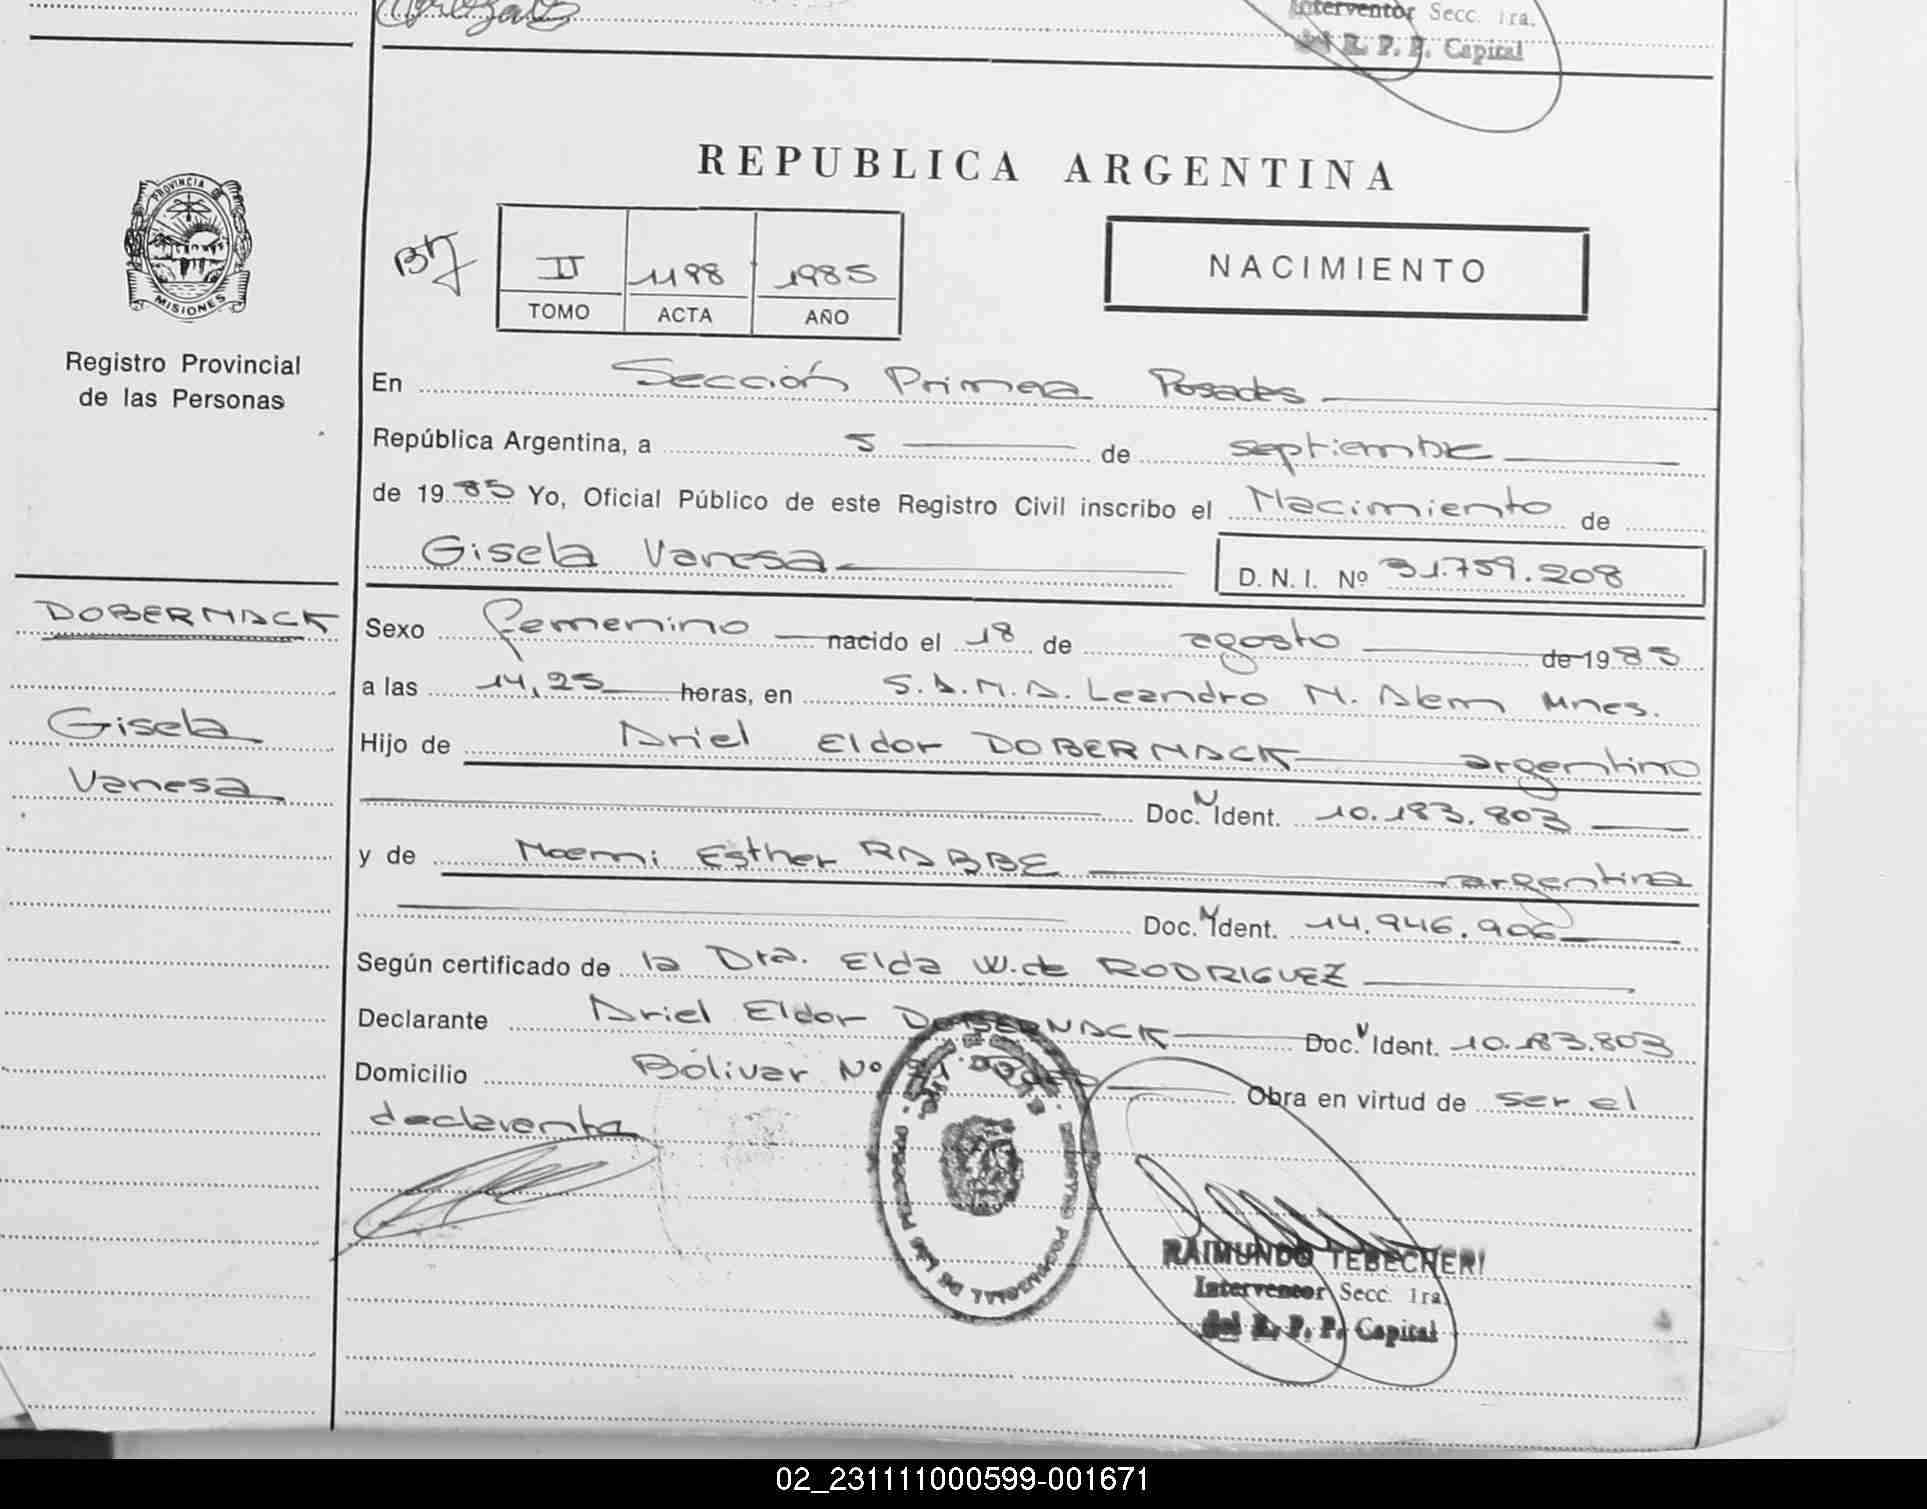 Interventor Secc. 1ra.
del R. P. P. Capital
REPUBLICA ARGENTINA
PROVINCIA DE
MISIONES
Registro Provincial
de las Personas
II 1198 1985
TOMO ACTA AÑO
NACIMIENTO
En Sección Primera Posadas
República Argentina, a 5 de septiembre
de 1985 Yo, Oficial Público de este Registro Civil inscribo el Nacimiento de
Gisela Vanesa D. N. I. Nº 31.759.208
DOBERNACK
Gisela
Vanesa
Sexo femenino nacido el 18 de agosto de 1985
a las 14,25 horas, en S.A.M.A. Leandro N. Alem Mnes.
Hijo de Ariel Eldor DOBERNACK argentino
Doc. N Ident. 10.183.803
y de Noemi Esther RABBE argentina
Doc. N Ident. 14.946.906
Según certificado de la Dra. Elda W. de RODRIGUEZ
Declarante Ariel Eldor DOBERNACK Doc. N Ident. 10.183.803
Domicilio Bólivar Nº Obra en virtud de ser el
declarante
RAIMUNDO TEBECHERI
Interventor Secc. 1ra.
del R. P. P. Capital
02_231111000599-001671